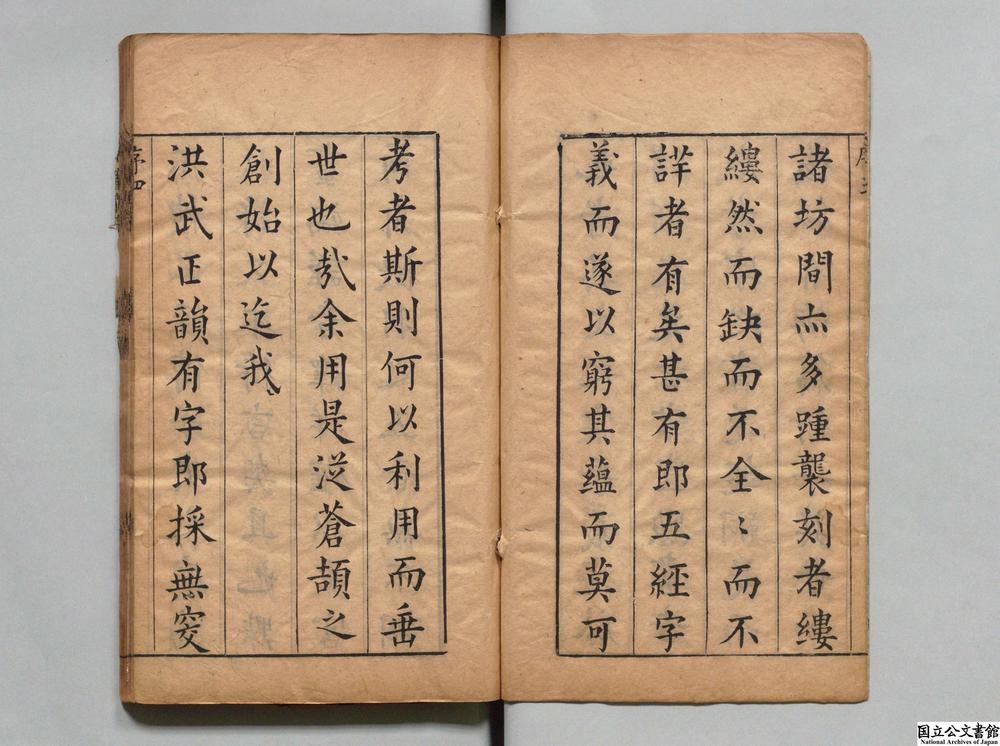 諸坊間亦多踵襲刻者縷
縷然而缺而不全〻而不
詳者有矣甚有即五經字
義而遂以窮其蘊而莫可
考者斯則何以利用而垂
世也哉余用是从蒼頡之
創始以迄我
洪武正韻有字即採無奕
序四
国立公文書館
National Archives of Japan